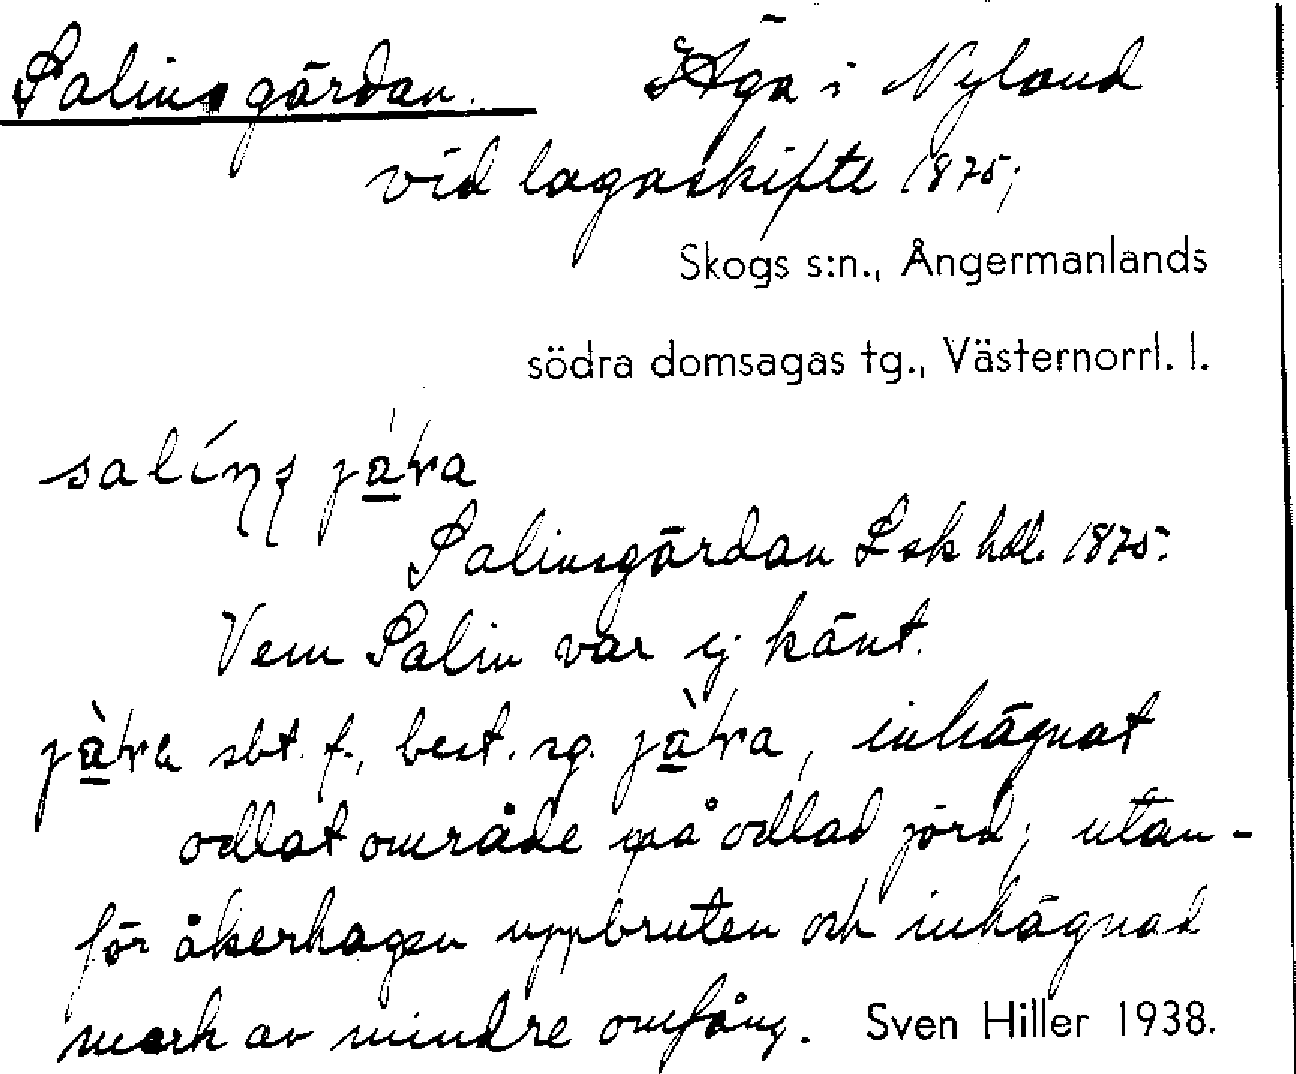 Salinsgärdan. Äga i Nyland
vid lagaskifte 1875;
Skogs s:n., Ångermanlands
södra domsagas tg., Västernorrl. l.
Salinsgärdan Lsk hdl. 1875.
Vem Salin var ej känt.
sbt. f., best. sg. inhägnat
odlat område på odlad jord; utan-
för åkerhagen uppbruten och inhägnad
mark av mindre omfång. Sven Hiller 1938.